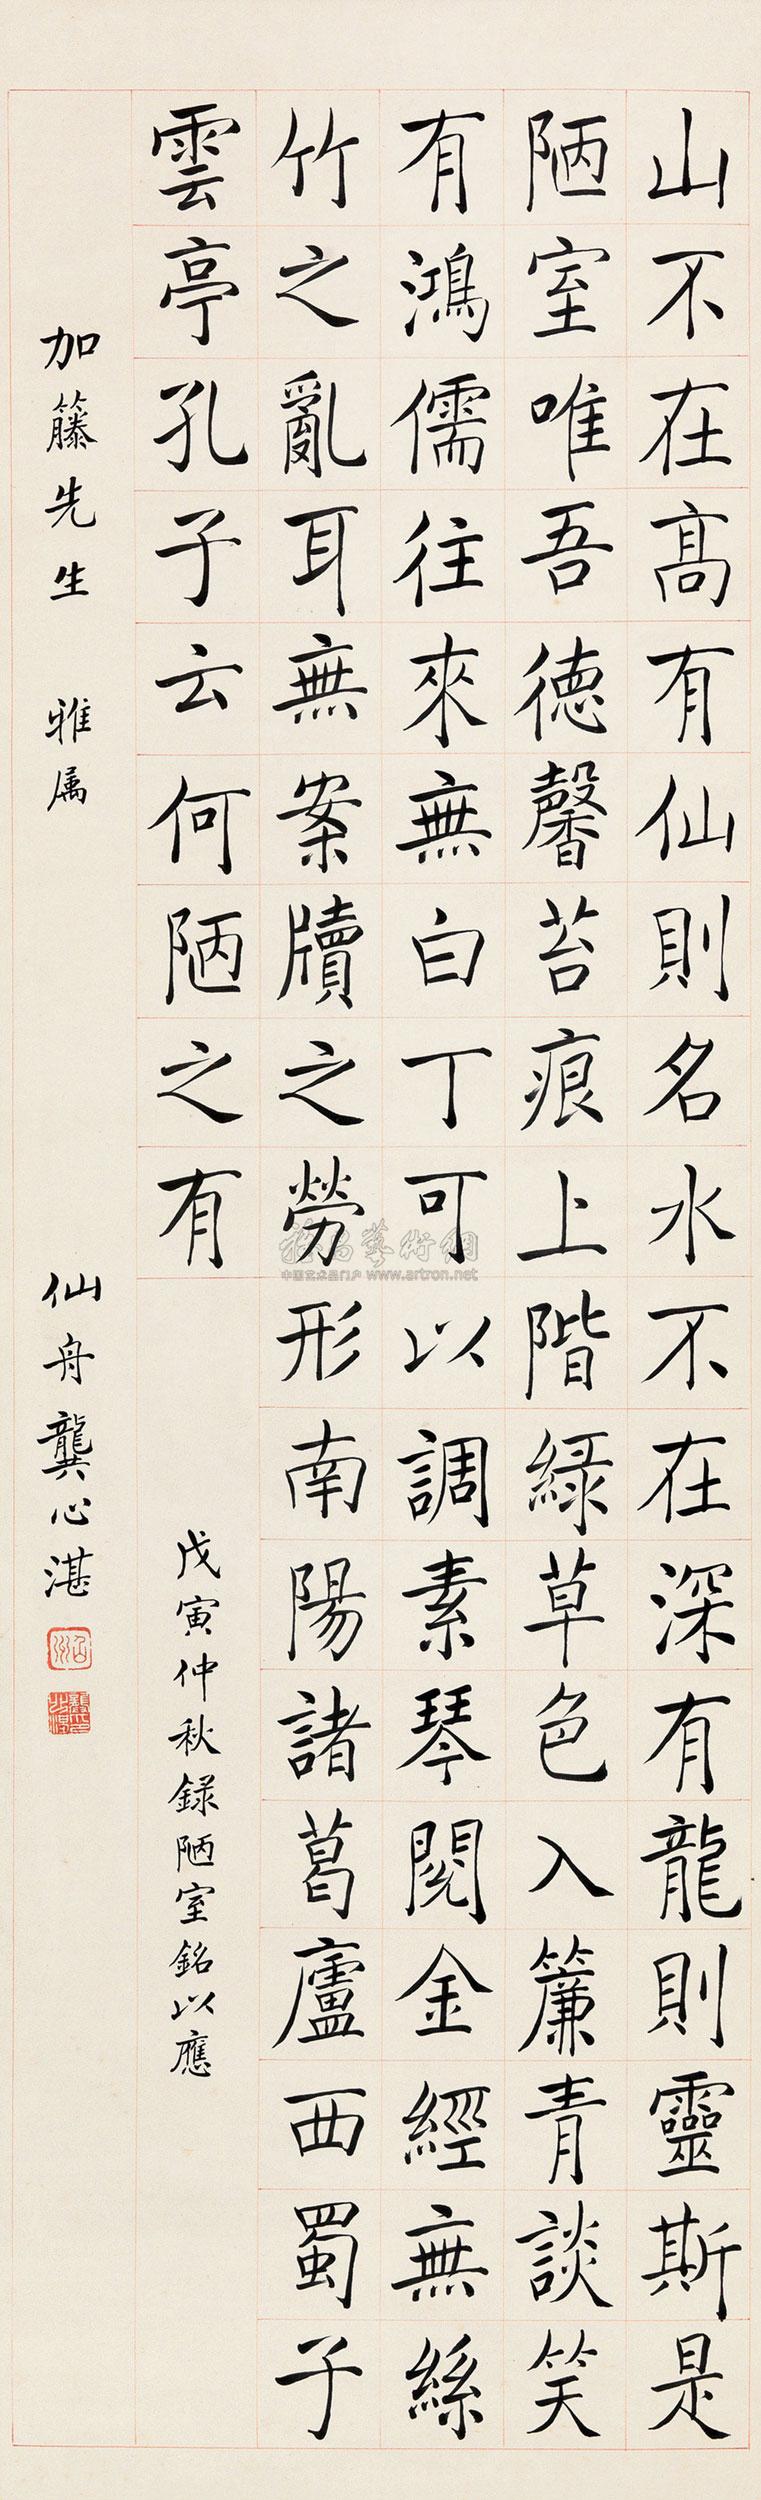 山不在高有仙則名水不在深有龍則靈斯是
陋室唯吾德馨苔痕上階緑草色入簾青談笑
有鴻儒往來無白丁可以調素琴閱金經無絲
竹之亂耳無案牘之勞形南陽諸葛廬西蜀子
雲亭孔子云何陋之有
戊寅仲秋録陋室銘以應
加籐先生 雅属
仙舟龔心湛
中国艺术品门户 www.artron.net